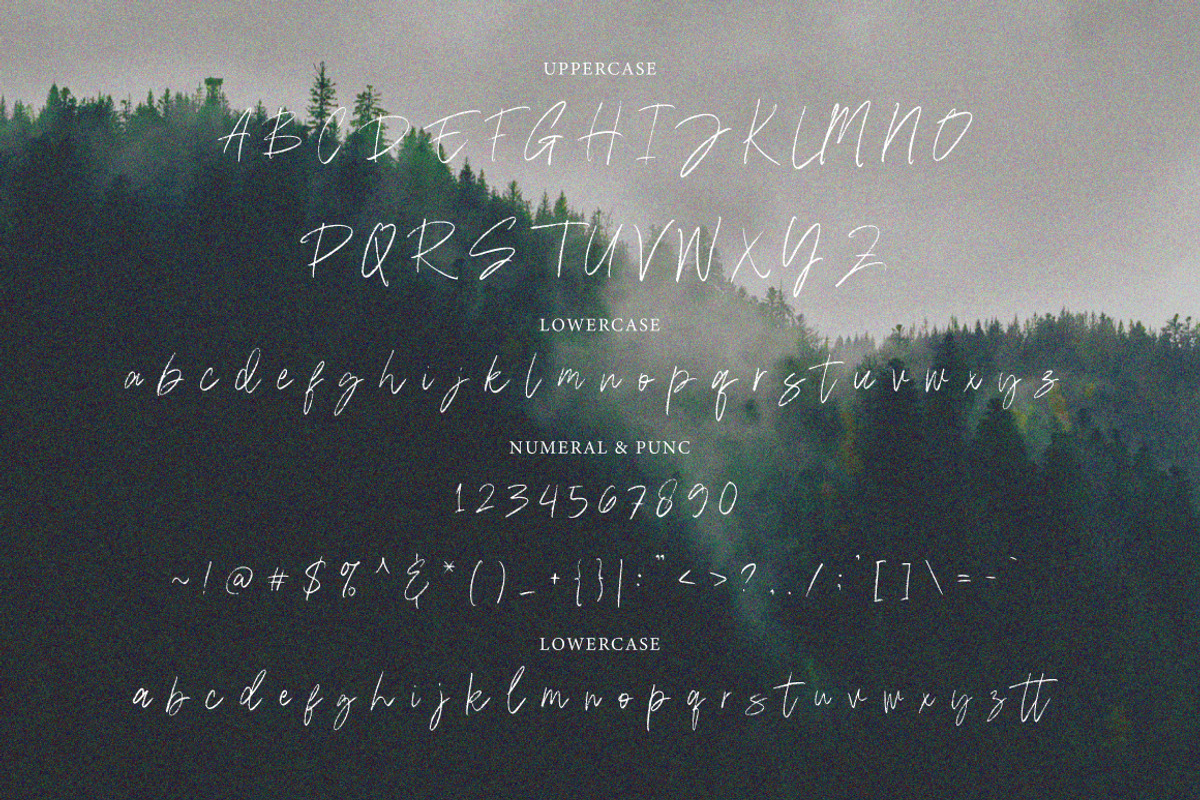 UPPERCASE
A B C D E F G H I J K L M N O
P Q R S T U V W X Y Z
LOWERCASE
a b c d e f g h i j k l m n o p q r s t u v w x y z
NUMERAL & PUNC
1 2 3 4 5 6 7 8 9 0
~ ! @ # $ % ^ & * ( ) _ + { } | : " < > ? , . / ; ' [ ] \ = - `
LOWERCASE
a b c d e f g h i j k l m n o p q r s t u v w x y z tt